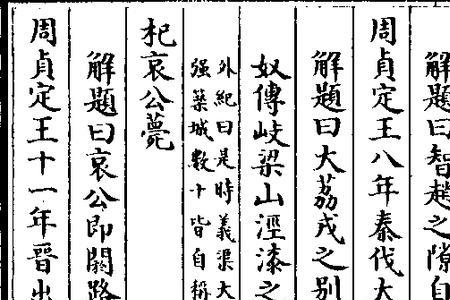 解題曰智趙之隙自
周貞定王八年秦伐大
解題曰大荔戎之別
奴傳岐梁山涇漆之
外紀曰是時義渠大
强築城數十皆自稱
杞哀公薨
解題曰哀公即閼路
周貞定王十一年晉出